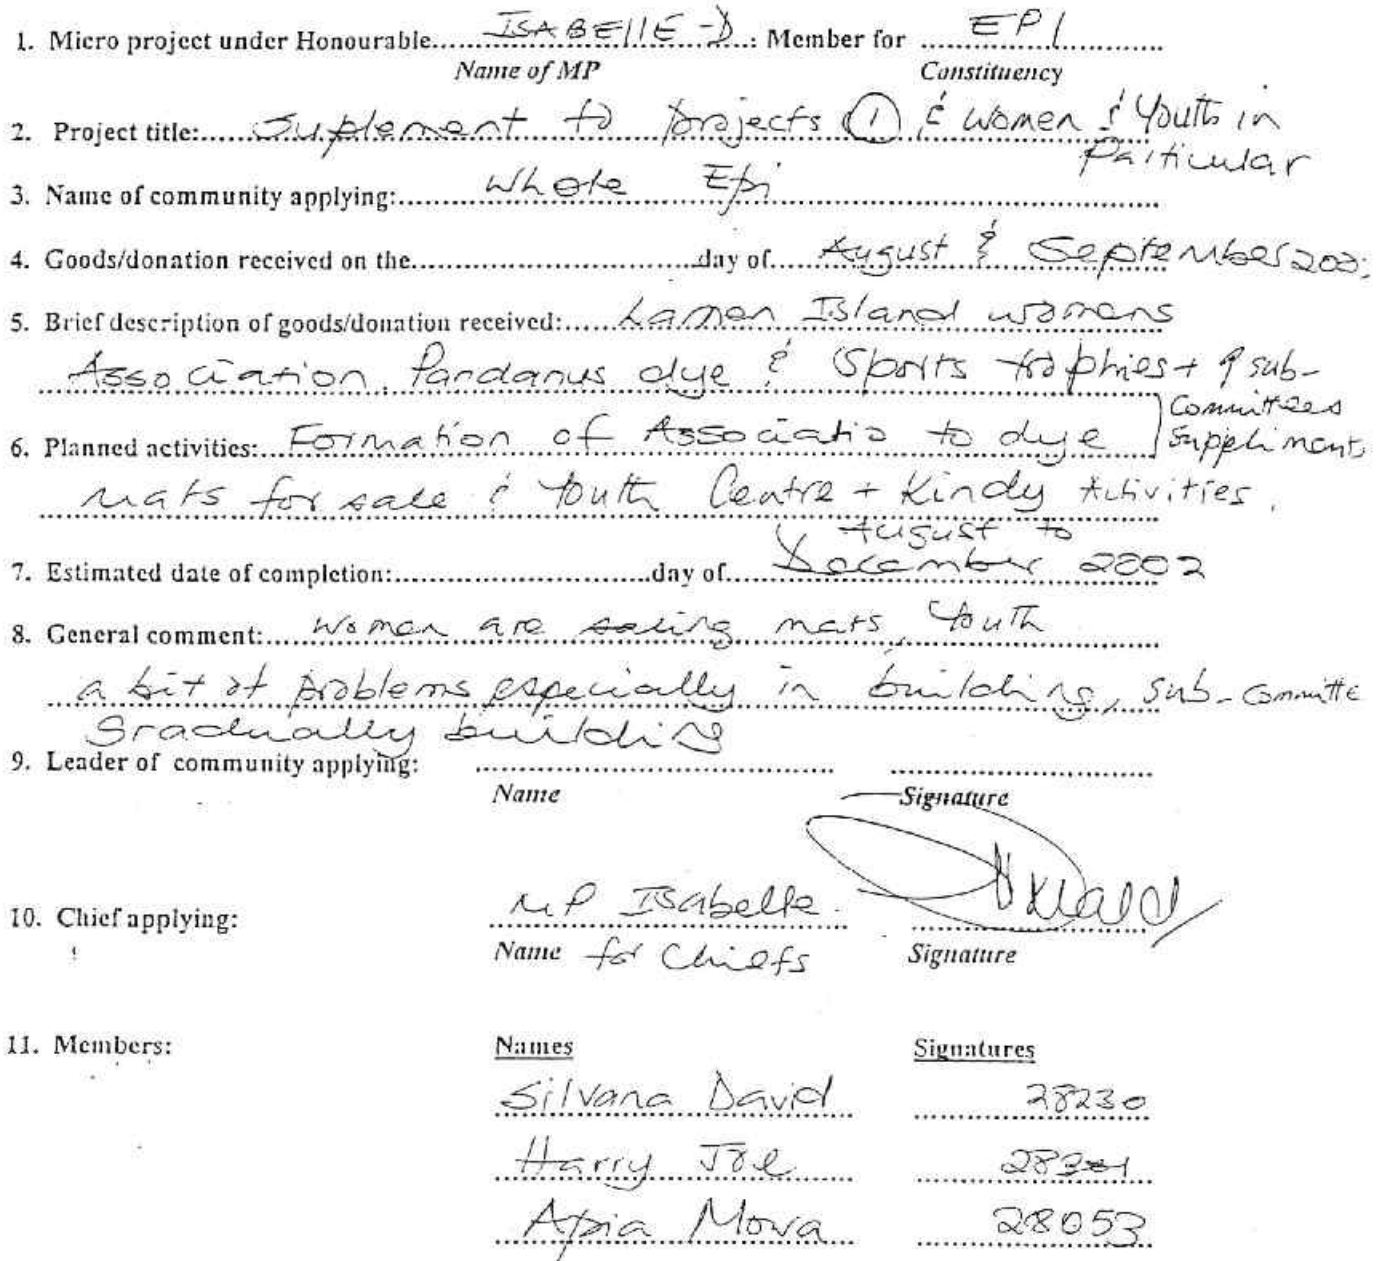 1. Micro project under Honourable.....ISABEllE-D.: Member for ....EPI....
Name of MP Constituency
2. Project title:.....Suplement to projects ① & women & Youth in
Particular
3. Name of community applying:.....Whole Epi.....
4. Goods/donation received on the..........day of....August & September
5. Brief description of goods/donation received:.....Lamen Island womans
Association, Pandanus dye & Sports trophies + 9 sub-
Committees
6. Planned activities: Formation of Associatio to dye
Suppliments
mats for sale & Youth Centre + Kindy Activities.
August to
7. Estimated date of completion:..........day of....December 2002
8. General comment:....Women are saling mats, Youth
a bit of problems especially in building, sub-Committe
Gradually building
9. Leader of community applying: .......... ..........
Name Signature
10. Chief applying: MP Isabelle.
Name for Chiefs Signature
11. Members: Names Signatures
Silvana David 28230
Harry Joe
Apia Mowa 28053